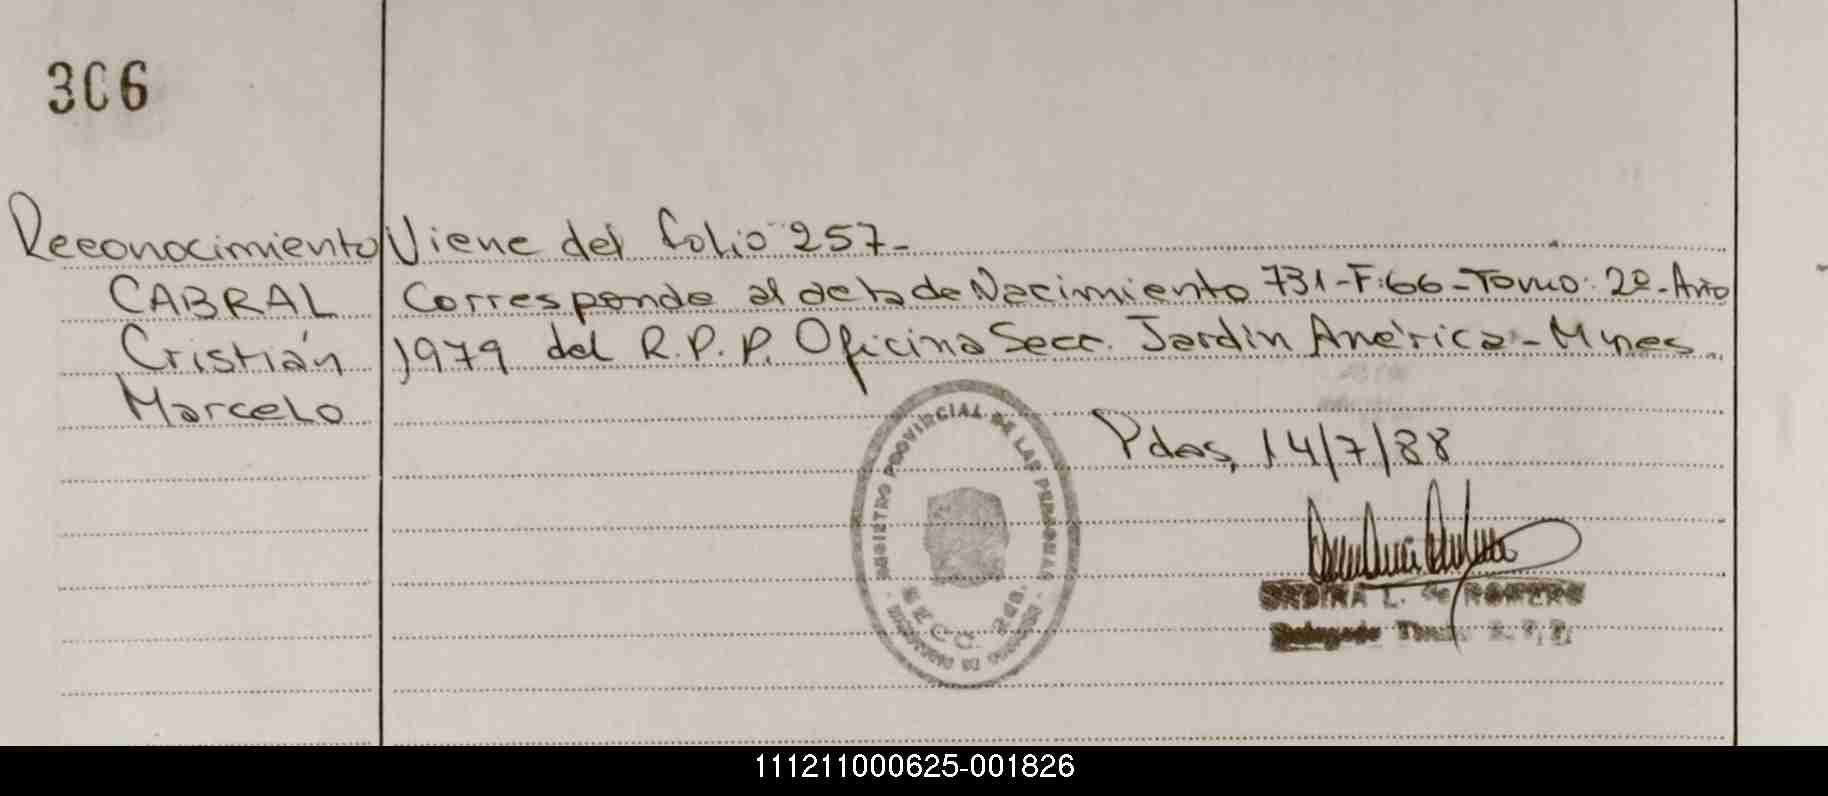 306
Reconocimiento Viene del folio 257-
CABRAL Corresponde al acta de Nacimiento 731-F:66-Tomo: 2º-Año
Cristián 1979 del R.P.P. Oficina Secc. Jardín América-Mnes.
Marcelo
Pdas, 14/7/88
REGISTRO PROVINCIAL DE LAS PERSONAS
SECC.
ONDINA L. de ROMERO
Delegado Titular R.P.P.
111211000625-001826